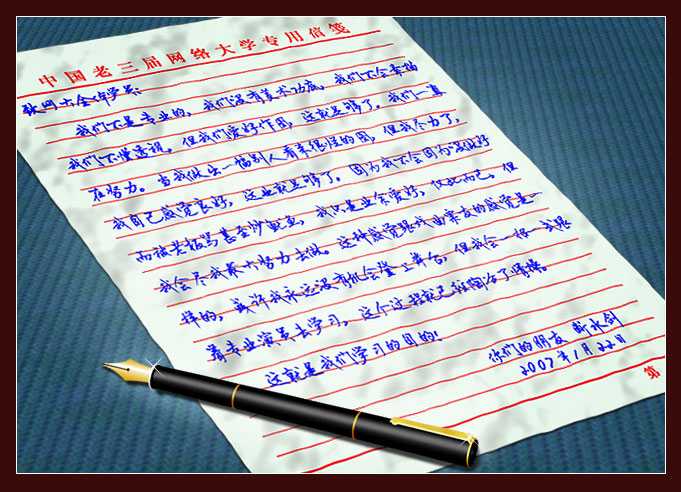 中国老三届网络大学专用信笺
网大全体学员:
我们不是专业的,我们没有美术功底,我们不会素描
我们不懂透视。但我们爱好作图,这就足够了。我们一直
在努力。当我做出一幅别人看来很怪的图,但我尽力了,
我自己感觉良好,这也就足够了。因为我不会因为没做好
而被老板骂甚至炒鱿鱼,我只是业余爱好,仅此而已。但
我会尽我最大努力去做。这种感觉跟戏曲票友的感觉是一
样的,或许我永远没有机会登上舞台,但我会一招一式跟
着专业演员去学习,这个过程就已经陶冶了情操。
这就是我们学习的目的!
你们的朋友 断水剑
2007年1月22日
第